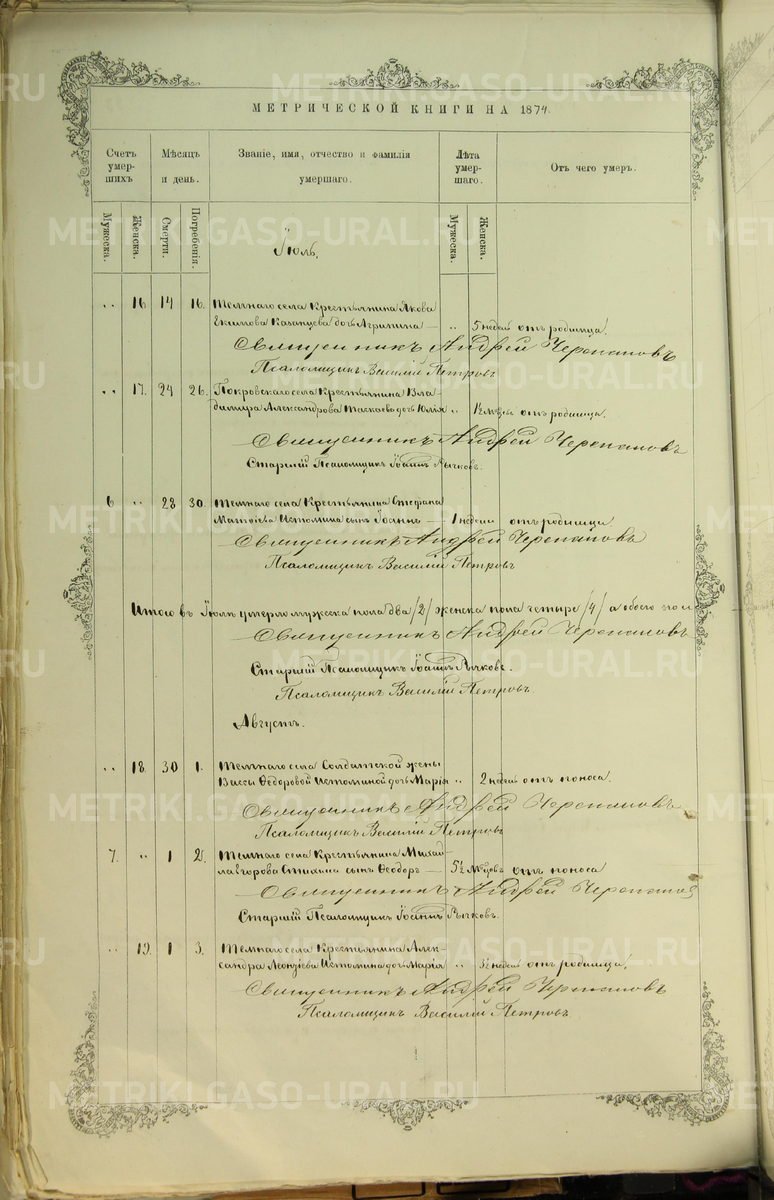 METRIKI.GASO-URAL.RU
МЕТРИЧЕСКОЙ КНИГИ НА 1874.
Счетъ умер- шихъ
Мѣсяцъ и день.
Званіе, имя, отчество и фамилія умершаго.
Лѣта умер- шаго.
Отъ чего умеръ.
Мужеска. Женска. Смерти. Погребенія. Мужеска. Женска.
Іюль.
„ 16 14 16. Темнаго села Крестьянина Якова
Екимова Казанцева дочь Агрипина — „ 5 недель отъ родимца.
Священникъ Андрей Черепановъ
Псаломщикъ Василій Петровъ
„ 17. 24 26. Покровскаго села Крестьянина Вла-
димира Александрова дочь Юлія „ отъ родимца.
Священникъ Андрей Черепановъ
Старшій Псаломщикъ Іоаннъ Рычковъ.
6 „ 28 30. Темнаго села Крестьянина Стефана
Истомина сынъ Іоаннъ — 1 недели отъ родимца
Священникъ Андрей Черепановъ
Псаломщикъ Василій Петровъ
Итого въ Іюлѣ умерло мужеска пола два /2/ женска пола четыре /4/ а обоего пола
Священникъ Андрей Черепановъ
Старшій Псаломщикъ Іоаннъ Рычковъ.
Псаломщикъ Василій Петровъ.
Августъ.
„ 18. 30 1. Темнаго села Солдатской жены
Вассы Ѳедоровой Истоминой дочь Марія „ 2 недель отъ поноса.
Священникъ Андрей Черепановъ
Псаломщикъ Василій Петровъ
7. „ 1 2. Темнаго села Крестьянина Михаи-
ла сынъ Ѳеодоръ — 5½ мѣсцовъ отъ поноса
Священникъ Андрей Черепановъ
Старшій Псаломщикъ Іоаннъ Рычковъ.
„ 19. 1 3. Темнаго села Крестьянина Алек-
сандра Леонтіева Истомина дочь Марія „ недель отъ родимца.
Священникъ Андрей Черепановъ
Псаломщикъ Василій Петровъ